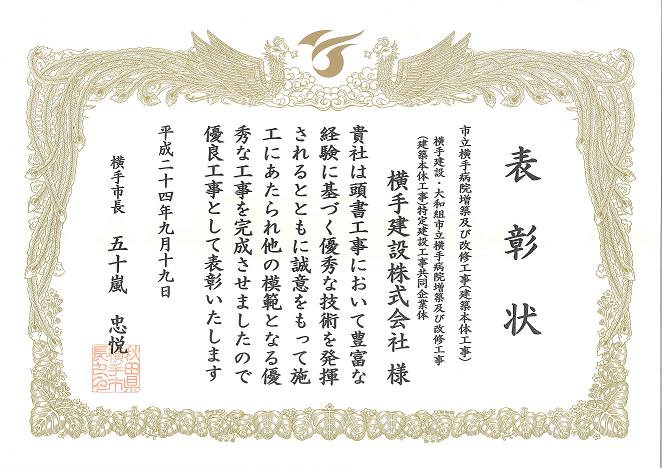 表彰状
市立横手病院増築及び改修工事(建築本体工事)
横手建設・大和組市立横手病院増築及び改修工事
(建築本体工事)特定建設工事共同企業体
横手建設株式会社 様
貴社は頭書工事において豊富な
経験に基づく優秀な技術を発揮
されるとともに誠意をもって施
工にあたられ他の模範となる優
秀な工事を完成させましたので
優良工事として表彰いたします
平成二十四年九月十九日
横手市長 五十嵐 忠悦
秋田県
横手市
長之印